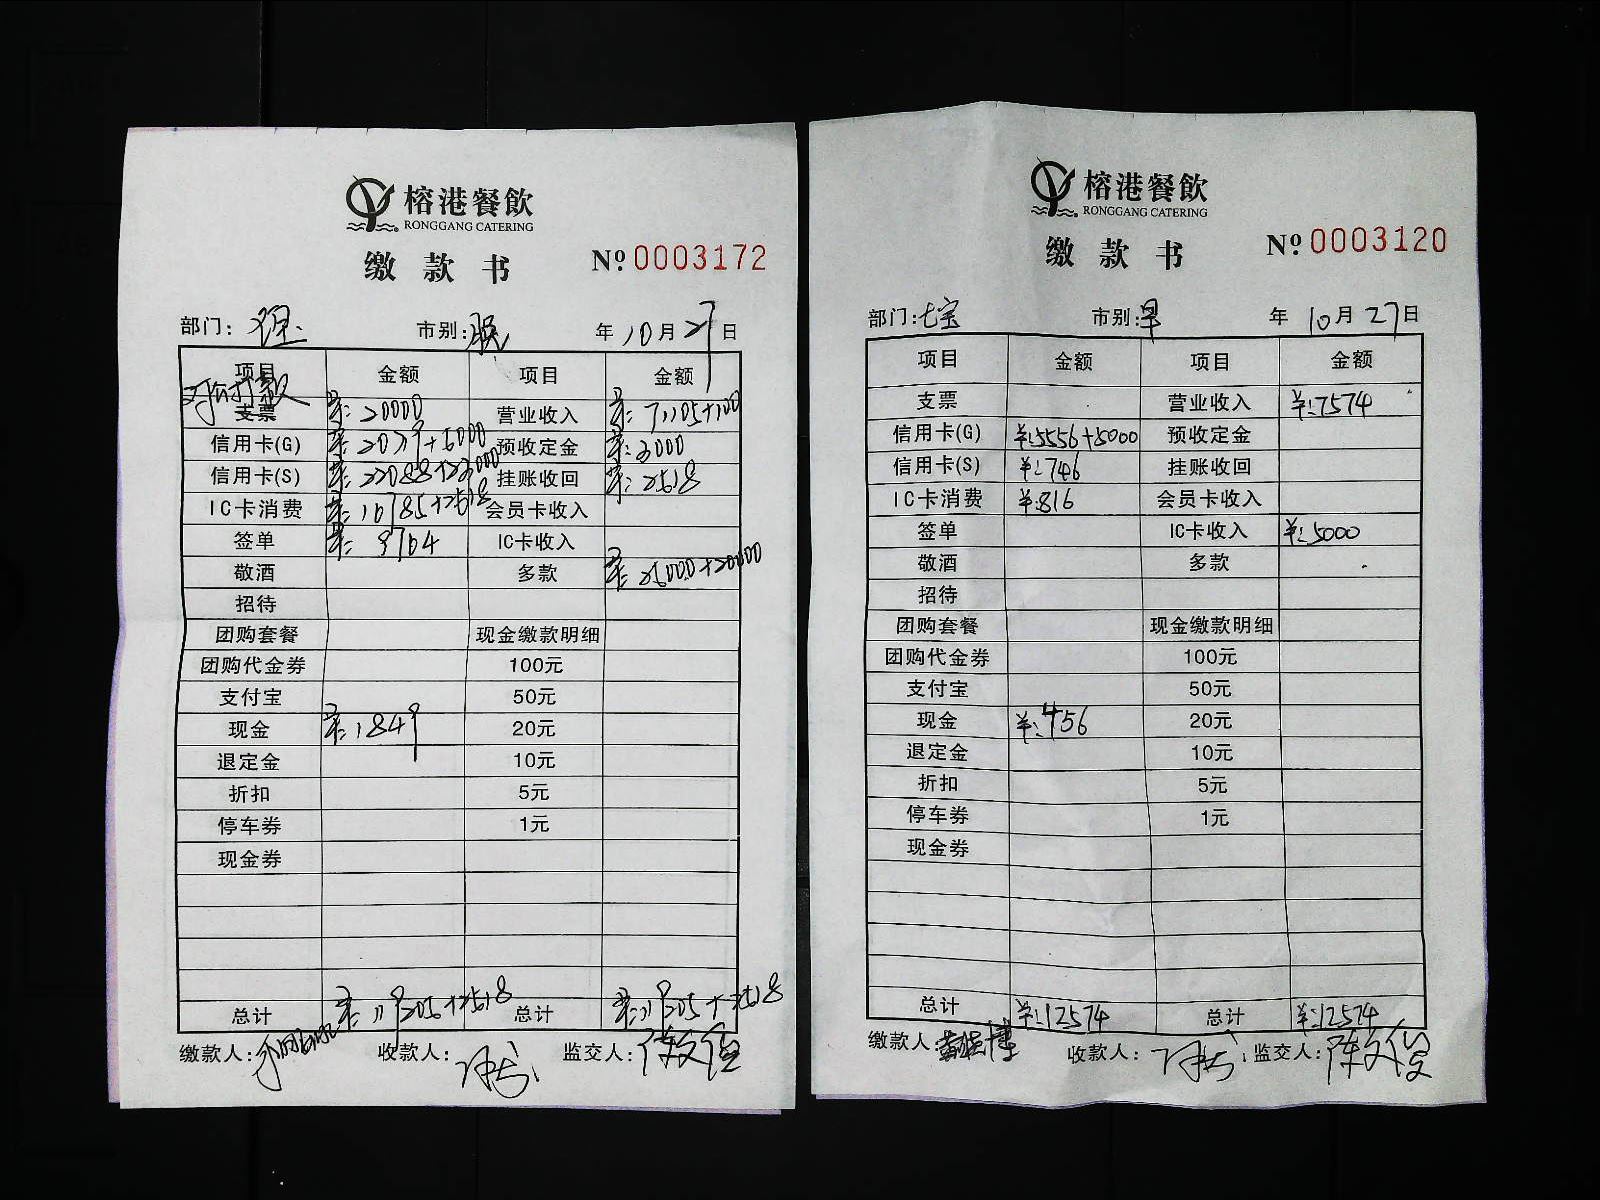 榕港餐飲
RONGGANG CATERING
缴款书
№ 0003172
部门: 市别: 年 10月27日
项目 金额 项目 金额
支票 ¥:20000 营业收入
信用卡(G) 预收定金
信用卡(S) 挂账收回 ¥:2518
IC卡消费 会员卡收入
签单 IC卡收入
敬酒 多款 ¥:25000+20000
招待
团购套餐 现金缴款明细
团购代金券 100元
支付宝 50元
现金 ¥:1849 20元
退定金 10元
折扣 5元
停车券 1元
现金券
总计 总计
缴款人: 收款人: 监交人:
榕港餐飲
RONGGANG CATERING
缴款书
№ 0003120
部门:七宝 市别:早 年 10月27日
项目 金额 项目 金额
支票 营业收入 ¥:7574
信用卡(G) ¥:5556+5000 预收定金
信用卡(S) ¥:746 挂账收回
IC卡消费 ¥:816 会员卡收入
签单 IC卡收入 ¥:5000
敬酒 多款
招待
团购套餐 现金缴款明细
团购代金券 100元
支付宝 50元
现金 ¥:456 20元
退定金 10元
折扣 5元
停车券 1元
现金券
总计 ¥:12574 总计 ¥:12574
缴款人: 收款人: 监交人: